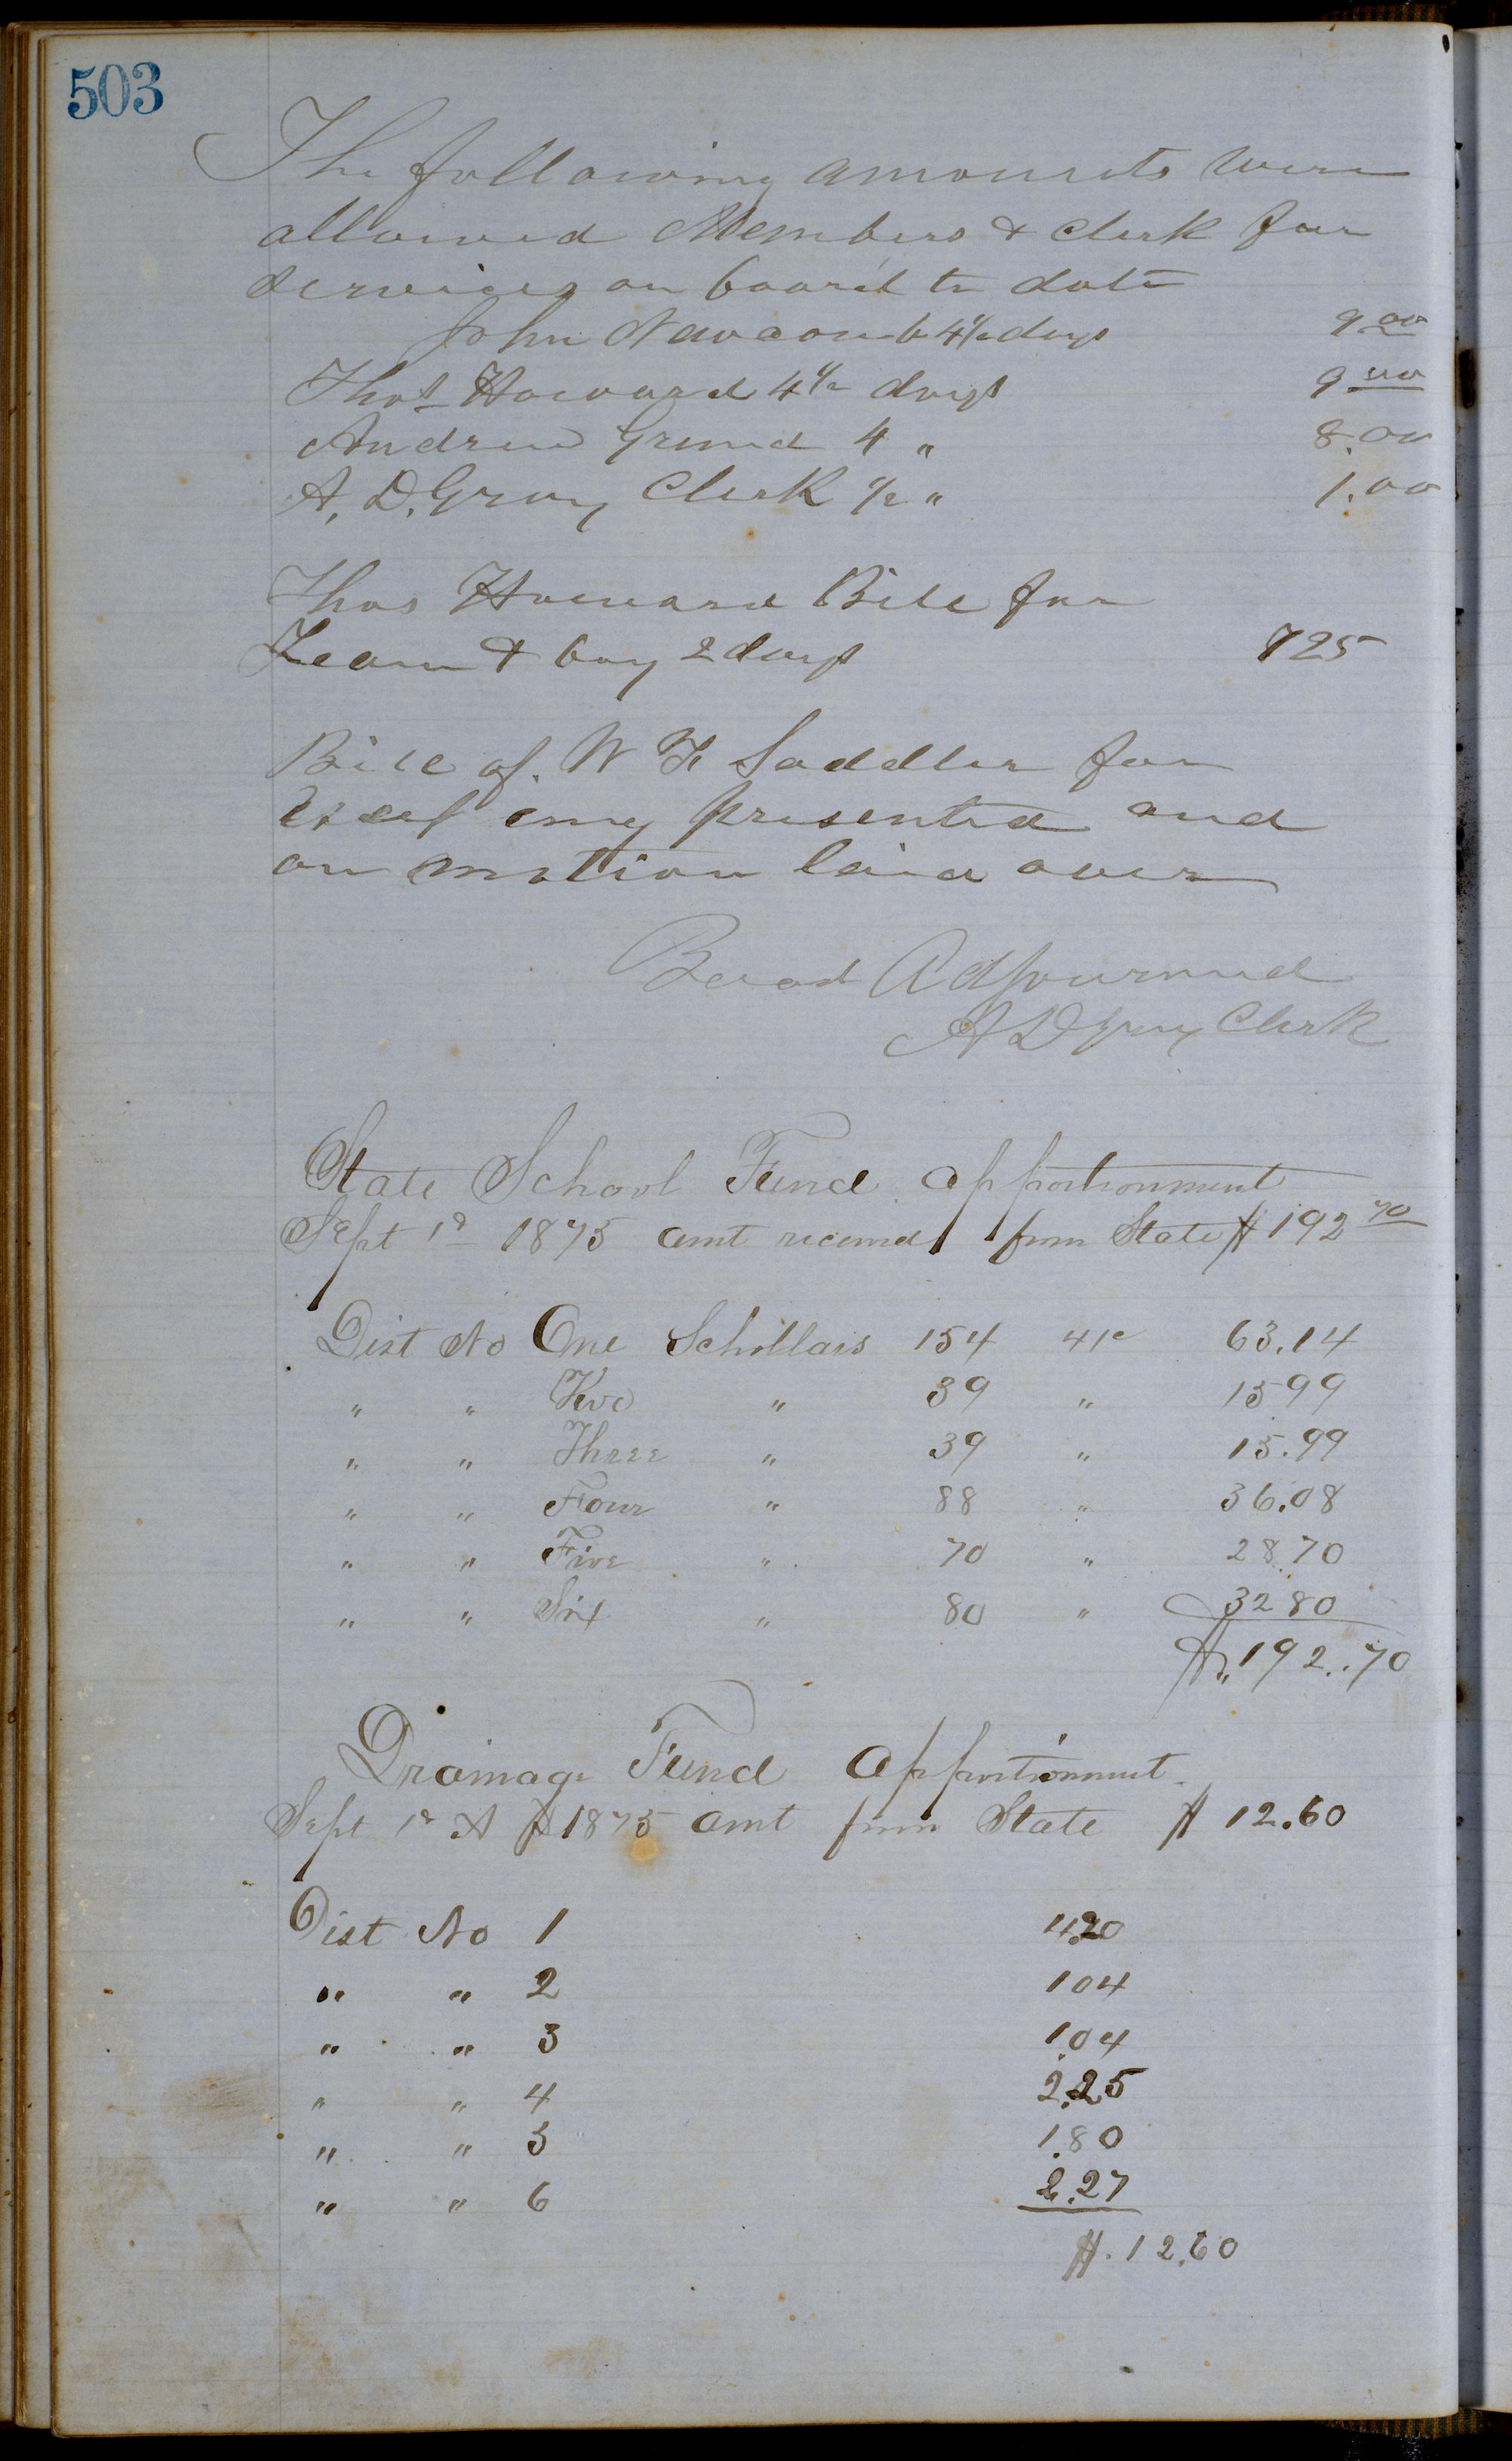 503
The following amounts were
allowed Members & Clerk for
services on board to date
John Nawcomb 4 1/2 days 9.00
Thos Howard 4 1/2 days 9.00
Andrew Grund 4 " 8.00
A. D. Gray Clerk 1/2 " 1.00
Thos Howard Bill for
Team & boy 2 days 725
Bill of W F Saddler for
presented and
on motion laid over
Board Adjourned
A D Gray Clerk
State School Fund apportionment
Sept 1st 1875 amt received from State $ 192 70
Dist No One Schollars 154 41c 63.14
" " Two " 39 " 15 99
" " Three " 39 " 15.99
" " Four " 88 " 36.08
" " Five " 70 " 28.70
" " Six " 80 " 32 80
$ 192.70
Drainage Fund apportionment
Sept 1st A D 1875 amt from State $ 12.60
Dist No 1 4.20
" " 2 104
" " 3 1.04
" " 4 2.25
" " 5 1.80
" " 6 2.27
$. 12.60